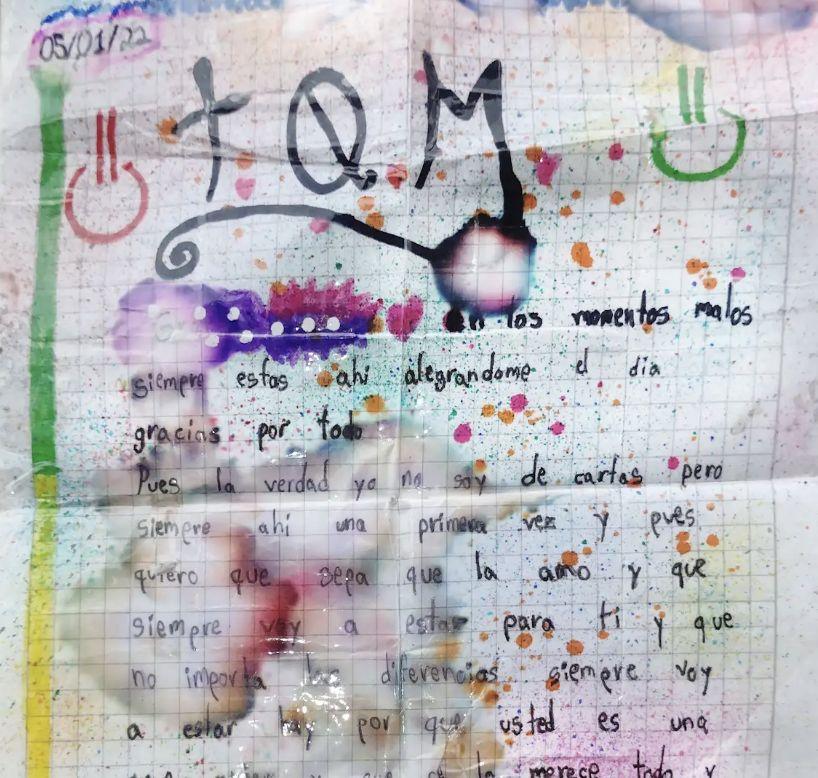 05/01/22
TQM
En los momentos malos
siempre estas ahi alegrandome el dia
gracias por todo
Pues la verdad yo no soy de cartas pero
siempre ahi una primera vez y pues
quiero que sepa que la amo y que
siempre voy a estar para ti y que
no importa las diferencias siempre voy
a estar hay por que usted es una
la merece todo y